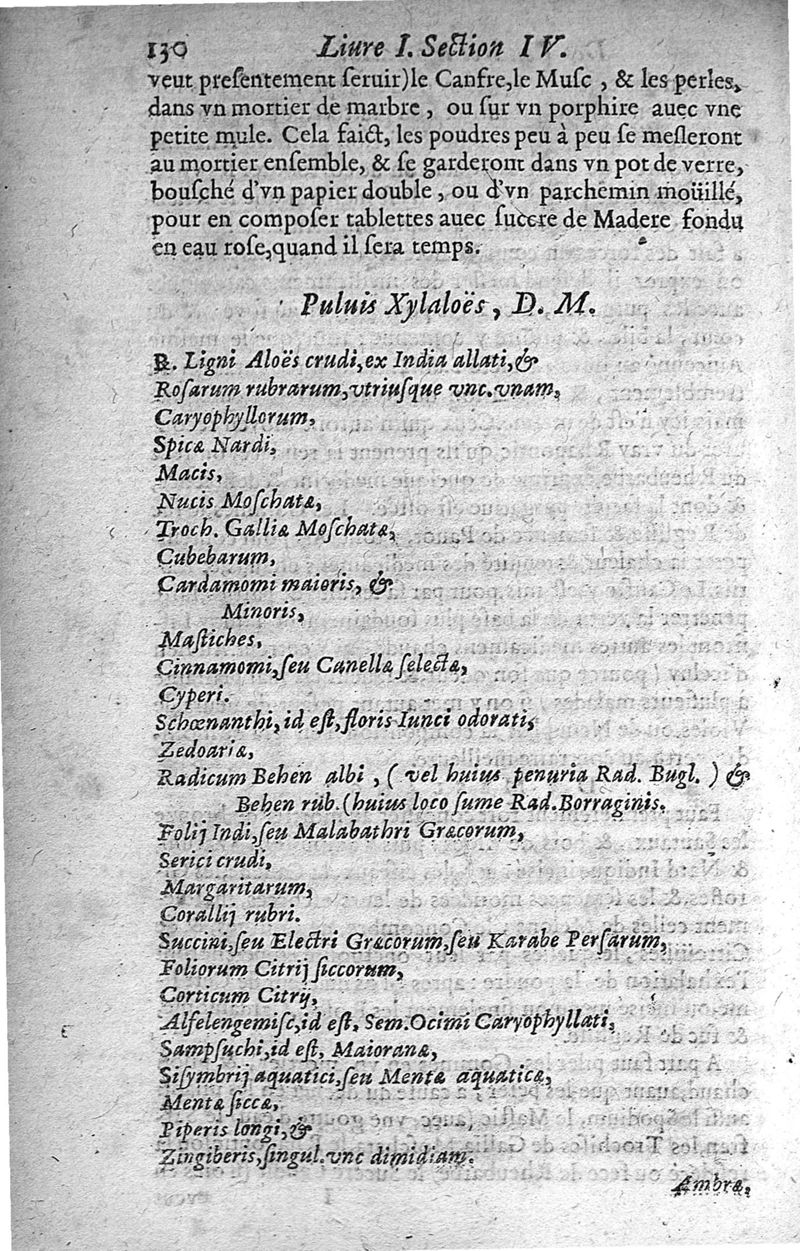 130 Liure I. Section IV.
veut preſentement ſeruir)le Canfre,le Muſc , & les perles,
dans vn mortier de marbre , ou ſur vn porphire auec vne
petite mule. Cela faict, les poudres peu à peu ſe meſleront
au mortier enſemble, & ſe garderont dans vn pot de verre,
bouſché d'vn papier double , ou d'vn parchemin moüillé,
pour en compoſer tablettes auec ſuccre de Madere fondu
en eau roſe,quand il ſera temps.
Puluis Xylaloës , D. M.
℞. Ligni Aloës crudi,ex India allati,&
Roſarum rubrarum,vtriuſque vnc.vnam,
Caryophyllorum,
Spicæ Nardi,
Macis,
Nucis Moſchatæ,
Troch. Galliæ Moſchatæ,
Cubebarum,
Cardamomi maioris, &
Minoris,
Maſtiches,
Cinnamomi,ſeu Canellæ ſelectæ,
Cyperi.
Schœnanthi,id eſt,floris Iunci odorati,
Zedoariæ,
Radicum Behen albi , ( vel huius penuria Rad. Bugl. ) &
Behen rub.(huius loco ſume Rad.Borraginis.
Folij Indi,ſeu Malabathri Græcorum,
Serici crudi,
Margaritarum,
Corallij rubri.
Succini,ſeu Electri Græcorum,ſeu Karabe Perſarum,
Foliorum Citrij ſiccorum,
Corticum Citrij,
Alfelengemiſc,id eſt, Sem.Ocimi Caryophyllati,
Sampſuchi,id eſt, Maioranæ,
Siſymbrij aquatici,ſeu Mentæ aquaticæ,
Mentæ ſiccæ,
Piperis longi,&
Zingiberis,ſingul.vnc dimidiam.
Ambræ,